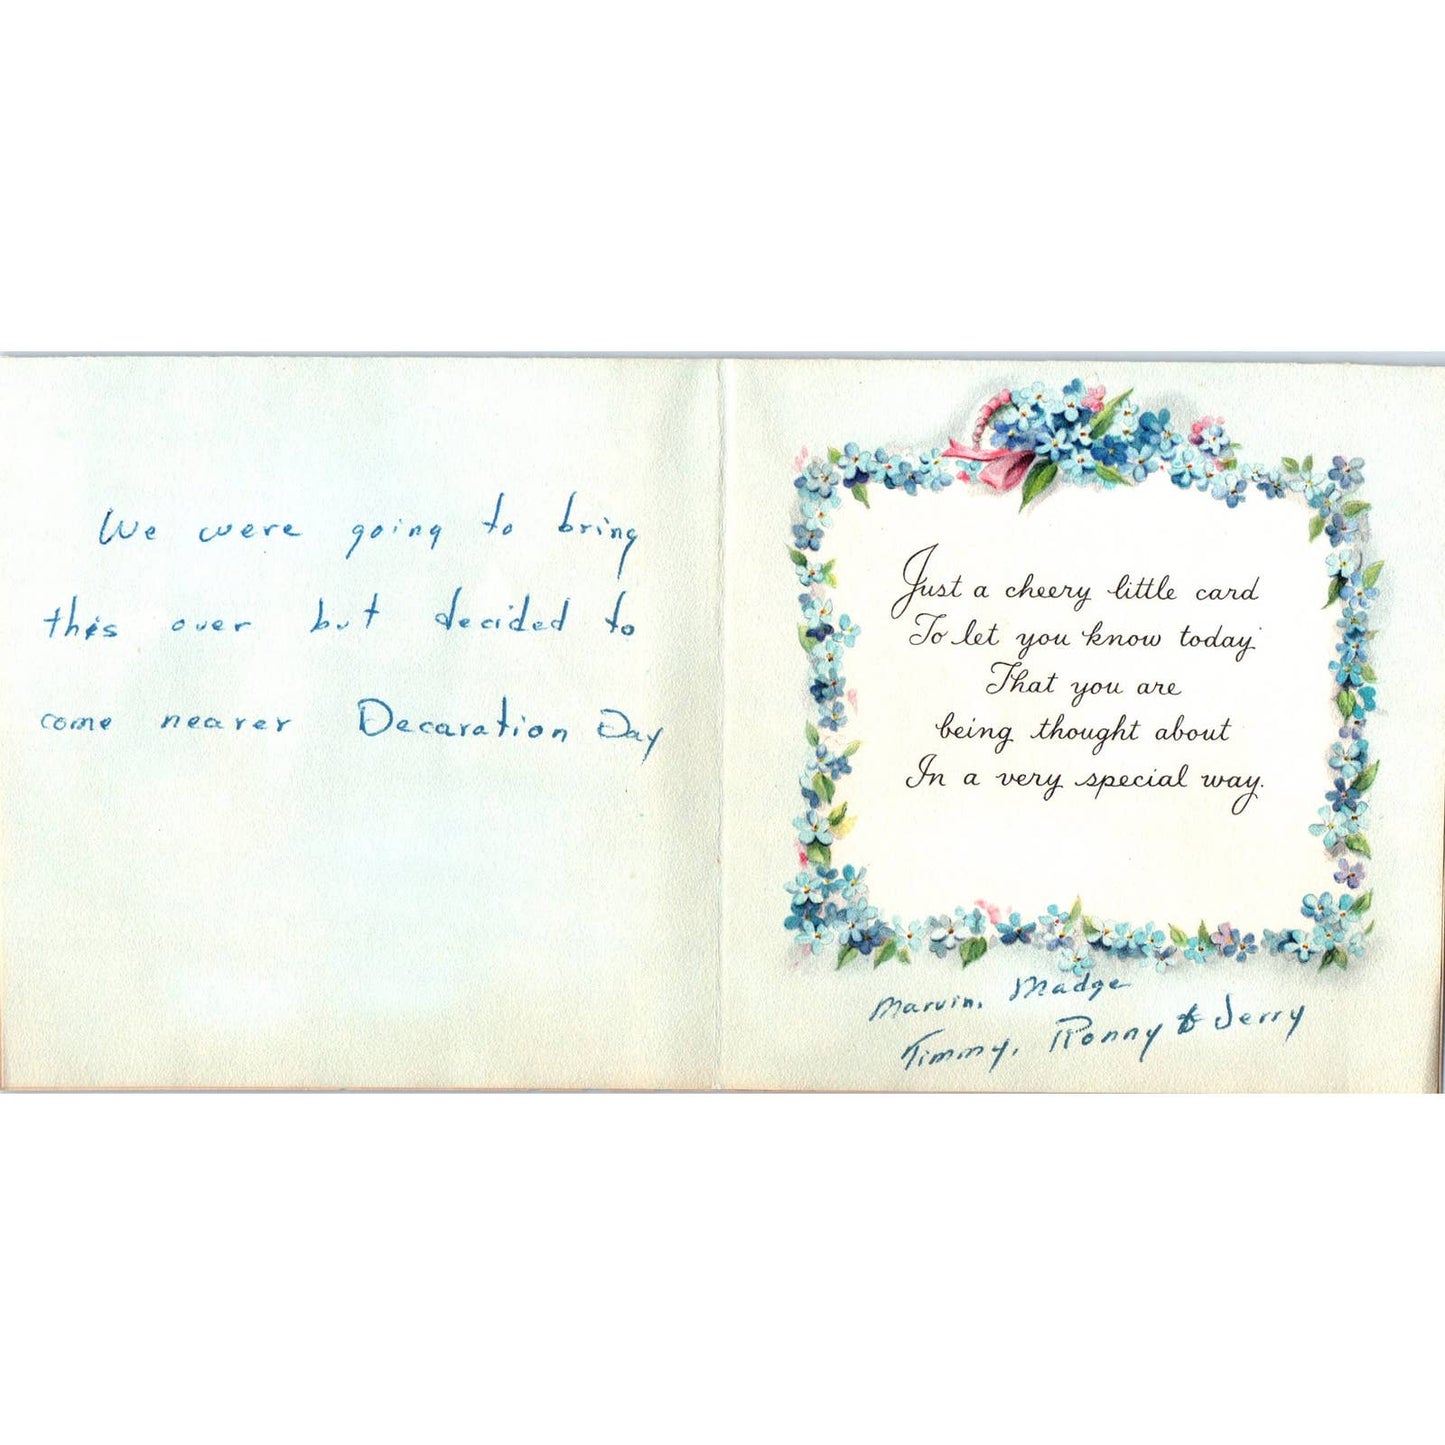 We were going to bring
this over but decided to
come nearer Decaration Day
Just a cheery little card
To let you know today
That you are
being thought about
In a very special way.
Marvin, Madge
Timmy, Ronny & Jerry